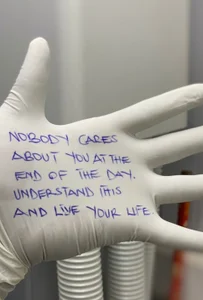 NOBODY CARES
ABOUT YOU AT THE
END OF THE DAY.
UNDERSTAND THIS
AND LIVE YOUR LIFE